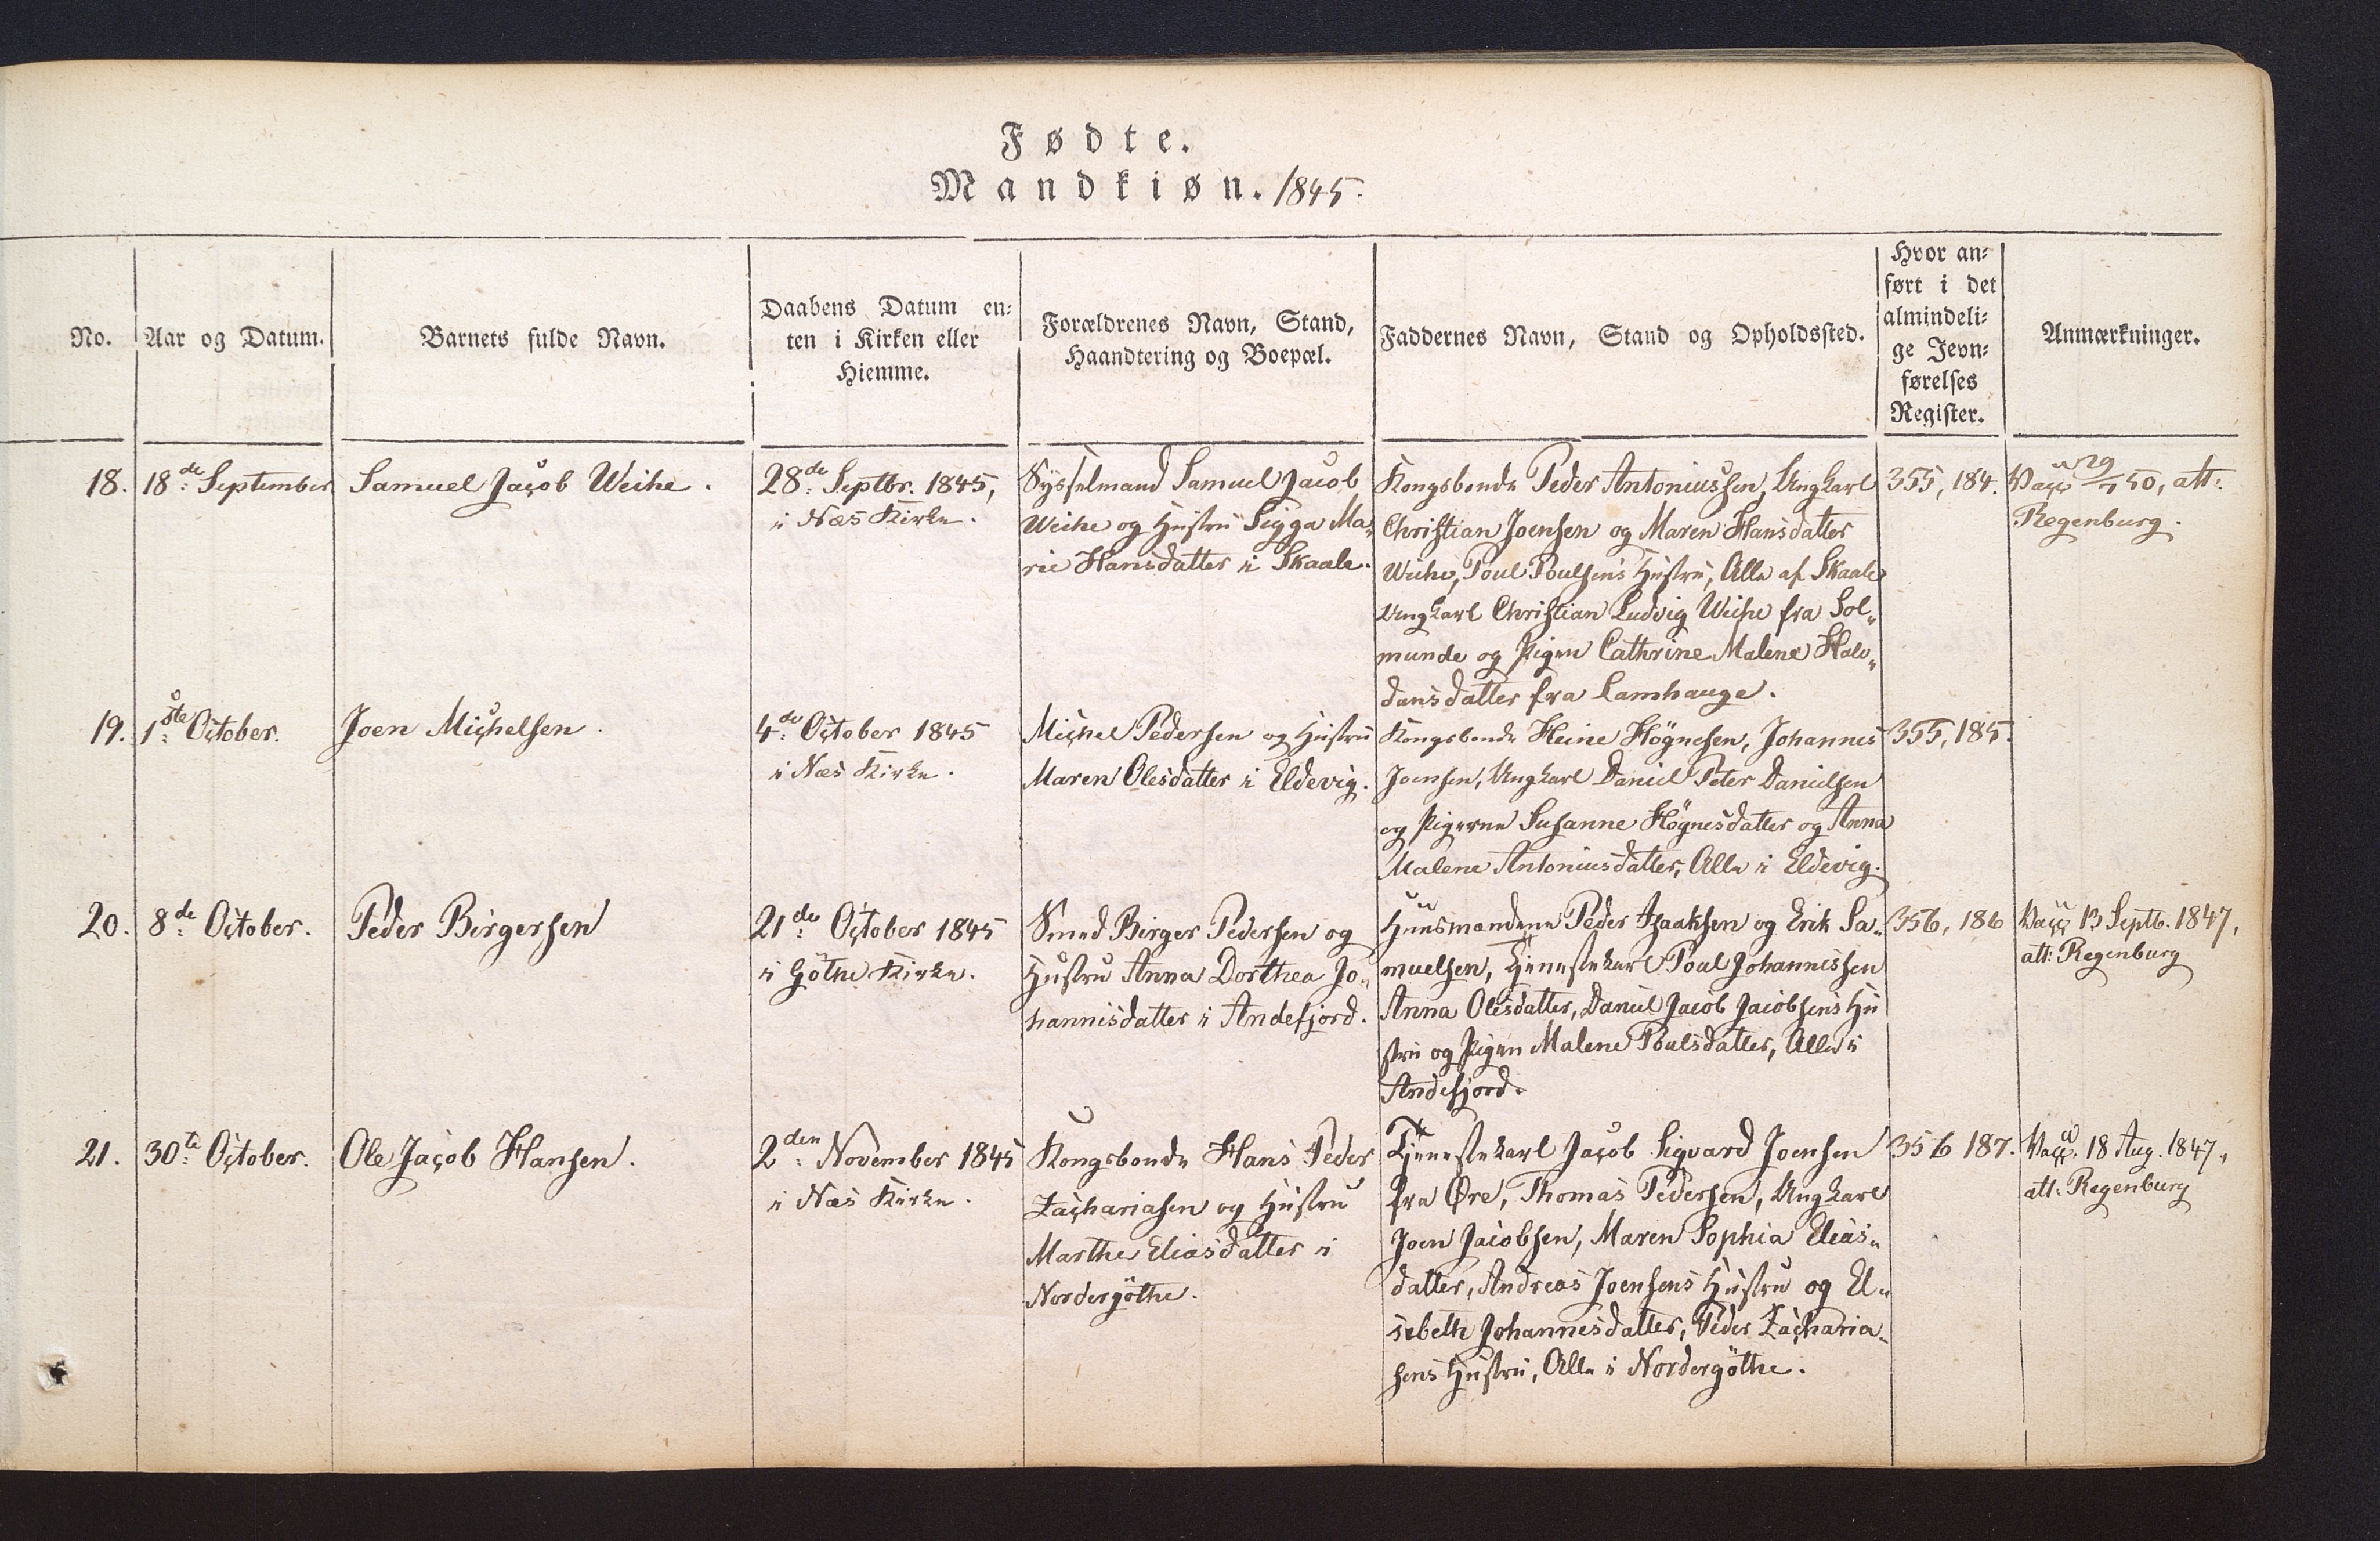 Fødte.
Mandkiøn. 1845.
No.
Aar og Datum.
Barnets fulde Navn.
Daabens Datum en-
ten i Kirken eller
Hiemme.
Forældrenes Navn, Stand,
Haandtering og Boepæl.
Faddernes Navn, Stand og Opholdssted.
Hvor an-
ført i det
almindeli-
ge Jevn-
førelses
Register.
Anmærkninger.
18.
18de September
Samuel Jacob Weihe.
28de Septbr. 1845,
i Næs Kirke.
Sysselmand Samuel Jacob
Weihe og Hustru Sigga Ma-
rie Hansdatter i Skaale.
Kongsbonde Peder Antoniussen, Ungkarl
Christian Joensen og Maren Hansdatter
Weihe, Poul Poulsens Hustru, Alle af Skaale
Ungkarl Christian Ludvig Weihe fra Sol-
munde og Pigen Cathrine Malene Halv-
dansdatter fra Lamhauge.
355, 184.
Vacc 29/7 50, att:
Regenburg.
19.
1ste October.
Joen Michelsen.
4de October 1845
i Næs Kirke.
Michel Pedersen og Hustru
Maren Olesdatter i Eldevig.
Kongsbonde Heine Høgnesen, Johannes
Joensen, Ungkarl Daniel Peter Danielsen
og Pigerne Susanne Høgnesdatter og Anna
Malene Antoniusdatter, Alle i Eldevig.
355, 185.
20.
8de October.
Peder Birgersen
21de October 1845
i Göthe Kirke.
Smed Birger Pedersen og
Hustru Anna Dorthea Jo-
hannisdatter i Andefjord.
Huusmændene Peder Isaaksen og Erik Sa-
muelsen, Tjenestekarl Poul Johannessen
Anna Olesdatter, Daniel Jacob Jacobsens Hu
stru og Pigen Malene Poulsdatter, Alle i
Andefjord.
356, 186
Vacc 13 Septb. 1847,
att: Regenburg
21.
30te October.
Ole Jacob Hansen.
2den November 1845
i Næs Kirke.
Kongsbonde Hans Peder
Zachariasen og Hustru
Marthe Eliasdatter i
Nordergöthe.
Tjenestekarl Jacob Sigvard Joensen
fra Øre, Thomas Pedersen, Ungkarl
Joen Jacobsen, Maren Sophia Elias-
datter, Andreas Joensens Hustru og El-
sebeth Johannesdatter, Peder Zacharia-
sens Hustru, Alle i Nordergöthe.
356 187.
Vacc. 18 Aug. 1847,
att: Regenburg